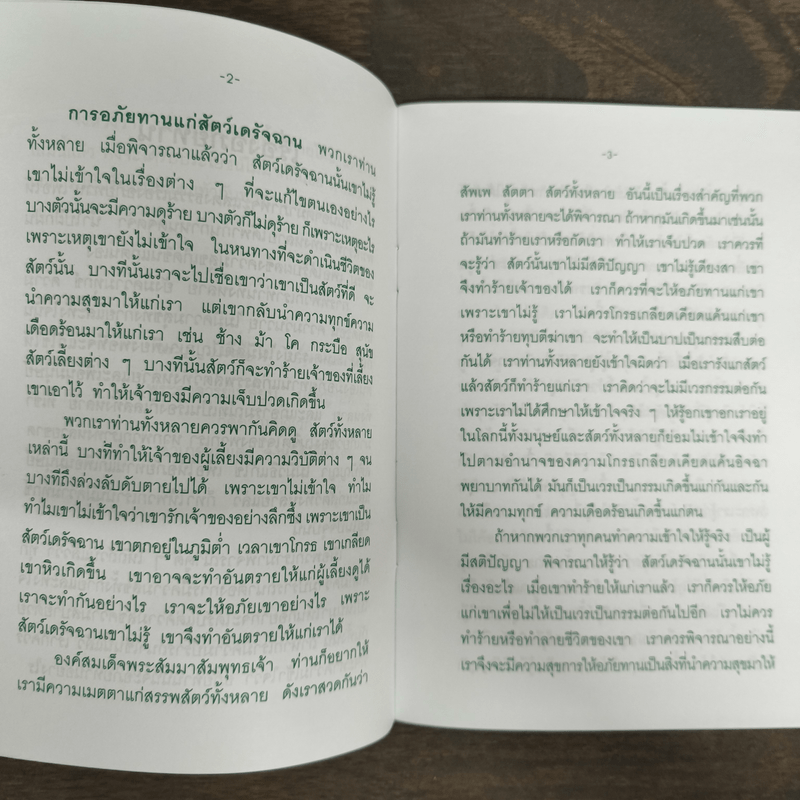 -2-
การอภัยทานแก่สัตว์เดรัจฉาน พวกเราท่าน
ทั้งหลาย เมื่อพิจารณาแล้วว่า สัตว์เดรัจฉานนั้นเขาไม่รู้
เขาไม่เข้าใจในเรื่องต่าง ๆ ที่จะแก้ไขตนเองอย่างไร
บางตัวนั้นจะมีความดุร้าย บางตัวก็ไม่ดุร้าย ก็เพราะเหตุอะไร
เพราะเหตุเขายังไม่เข้าใจ ในหนทางที่จะดำเนินชีวิตของ
สัตว์นั้น บางทีนั้นเราจะไปเชื่อเขาว่าเขาเป็นสัตว์ที่ดี จะ
นำความสุขมาให้แก่เรา แต่เขากลับนำความทุกข์ความ
เดือดร้อนมาให้แก่เรา เช่น ช้าง ม้า โค กระบือ สุนัข
สัตว์เลี้ยงต่าง ๆ บางทีนั้นสัตว์ก็จะทำร้ายเจ้าของที่เลี้ยง
เขาเอาไว้ ทำให้เจ้าของมีความเจ็บปวดเกิดขึ้น
พวกเราท่านทั้งหลายควรพากันคิดดู สัตว์ทั้งหลาย
เหล่านี้ บางทีทำให้เจ้าของผู้เลี้ยงมีความวิบัติต่าง ๆ จน
บางทีถึงล่วงลับดับตายไปได้ เพราะเขาไม่เข้าใจ ทำไม
ทำไมเขาไม่เข้าใจว่าเขารักเจ้าของอย่างลึกซึ้ง เพราะเขาเป็น
สัตว์เดรัจฉาน เขาตกอยู่ในภูมิต่ำ เวลาเขาโกรธ เขาเกลียด
เขาหิวเกิดขึ้น เขาอาจจะทำอันตรายให้แก่ผู้เลี้ยงดูได้
เราจะทำกันอย่างไร เราจะให้อภัยเขาอย่างไร เพราะ
สัตว์เดรัจฉานเขาไม่รู้ เขาจึงทำอันตรายให้แก่เราได้
องค์สมเด็จพระสัมมาสัมพุทธเจ้า ท่านก็อยากให้
เรามีความเมตตาแก่สรรพสัตว์ทั้งหลาย ดังเราสวดกันว่า
-3-
สัพเพ สัตตา สัตว์ทั้งหลาย อันนี้เป็นเรื่องสำคัญที่พวก
เราท่านทั้งหลายจะได้พิจารณา ถ้าหากมันเกิดขึ้นมาเช่นนั้น
ถ้ามันทำร้ายเราหรือกัดเรา ทำให้เราเจ็บปวด เราควรที่
จะรู้ว่า สัตว์นั้นเขาไม่มีสติปัญญา เขาไม่รู้เดียงสา เขา
จึงทำร้ายเจ้าของได้ เราก็ควรที่จะให้อภัยทานแก่เขา
เพราะเขาไม่รู้ เราไม่ควรโกรธเกลียดเคียดแค้นแก่เขา
หรือทำร้ายทุบตีฆ่าเขา จะทำให้เป็นบาปเป็นกรรมสืบต่อ
กันได้ เราท่านทั้งหลายยังเข้าใจผิดว่า เมื่อเรารังแกสัตว์
แล้วสัตว์ก็ทำร้ายแก่เรา เราคิดว่าจะไม่มีเวรกรรมต่อกัน
เพราะเราไม่ได้ศึกษาให้เข้าใจจริง ๆ ให้รู้อกเขาอกเราอยู่
ในโลกนี้ทั้งมนุษย์และสัตว์ทั้งหลายก็ย่อมไม่เข้าใจจึงทำ
ไปตามอำนาจของความโกรธเกลียดเคียดแค้นอิจฉา
พยาบาทกันได้ มันก็เป็นเวรเป็นกรรมเกิดขึ้นแก่กันและกัน
ให้มีความทุกข์ ความเดือดร้อนเกิดขึ้นแก่ตน
ถ้าหากพวกเราทุกคนทำความเข้าใจให้รู้จริง เป็นผู้
มีสติปัญญา พิจารณาให้รู้ว่า สัตว์เดรัจฉานนั้นเขาไม่รู้
เรื่องอะไร เมื่อเขาทำร้ายให้แก่เราแล้ว เราก็ควรให้อภัย
แก่เขาเพื่อไม่ให้เป็นเวรเป็นกรรมต่อกันไปอีก เราไม่ควร
ทำร้ายหรือทำลายชีวิตของเขา เราควรพิจารณาอย่างนี้
เราจึงจะมีความสุขการให้อภัยทานเป็นสิ่งที่นำความสุขมาให้